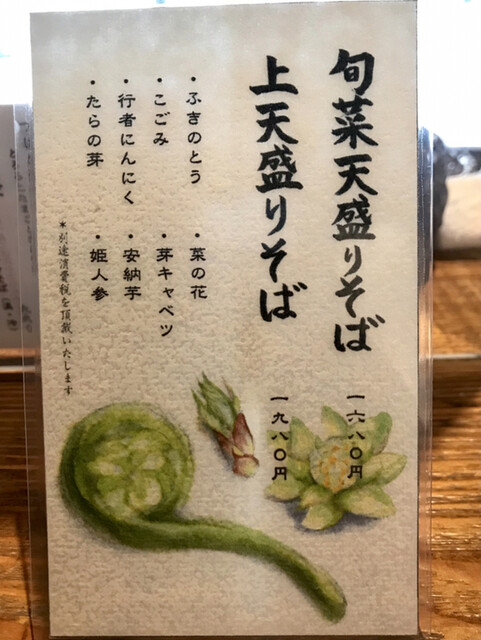 旬菜天盛りそば 一六八〇円
上天盛りそば 一九八〇円
・ふきのとう ・菜の花
・こごみ ・芽キャベツ
・行者にんにく ・安納芋
・たらの芽 ・姫人参
*別途消費税を頂戴いたします